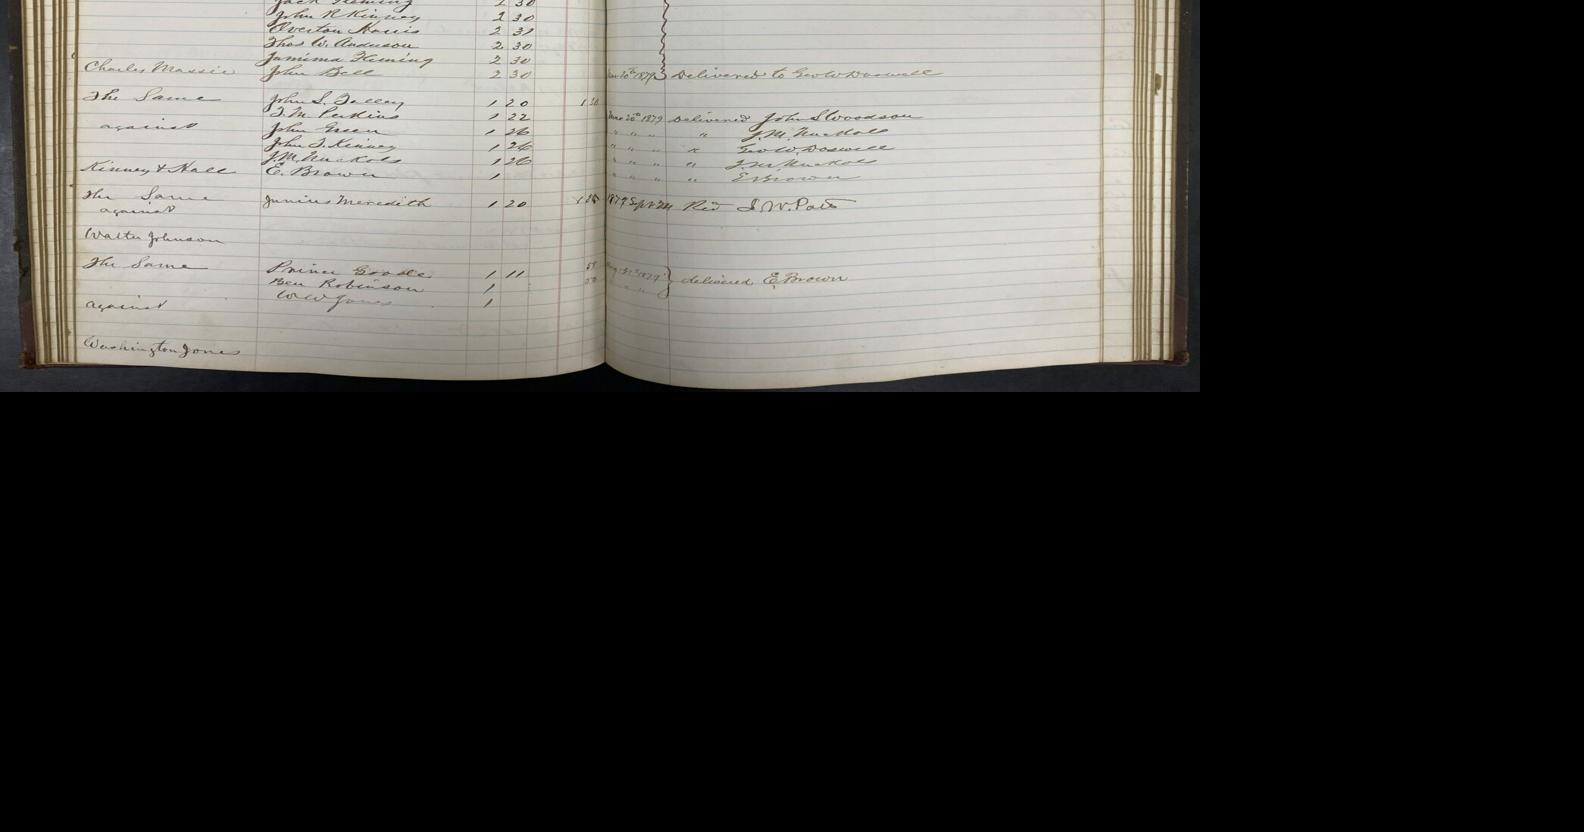 Jack Fleming 2 30
John R Kinney 2 30
Overton Harris 2 31
Thos W. Anderson 2 30
Jamima Fleming 2 30
Charles Massie John Bell 2 30 1879 Delivered to Geo W Doswell
The Same John S. Talley 1 20
T. M. Perkins 1 22 June 20th 1879 Delivered John S Woodson
against John Green 1 26 " " " " J. M. Nuckols
John T. Kinney 1 26 " " " " Geo W. Doswell
J. M. Nuckols 1 26 " " " " J M Nuckols
Kinney & Hall E. Brown 1 " " " " E Brown
The Same Junius Meredith 1 20 1879 Sept Rcd J. W. Pate
against
Walter Johnson
The Same Prince Goode 1 11
Ben Robinson 1 1879 delivered E. Brown
W W Jones 1 " " "
against
Washington Jones